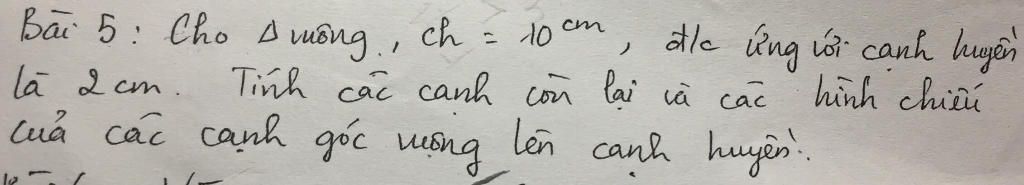 Bài 5 : Cho Δ vuông, ch = 10 cm, đ/c ứng với cạnh huyền
là 2 cm. Tính các cạnh còn lại và các hình chiếu
của các cạnh góc vuông lên cạnh huyền.